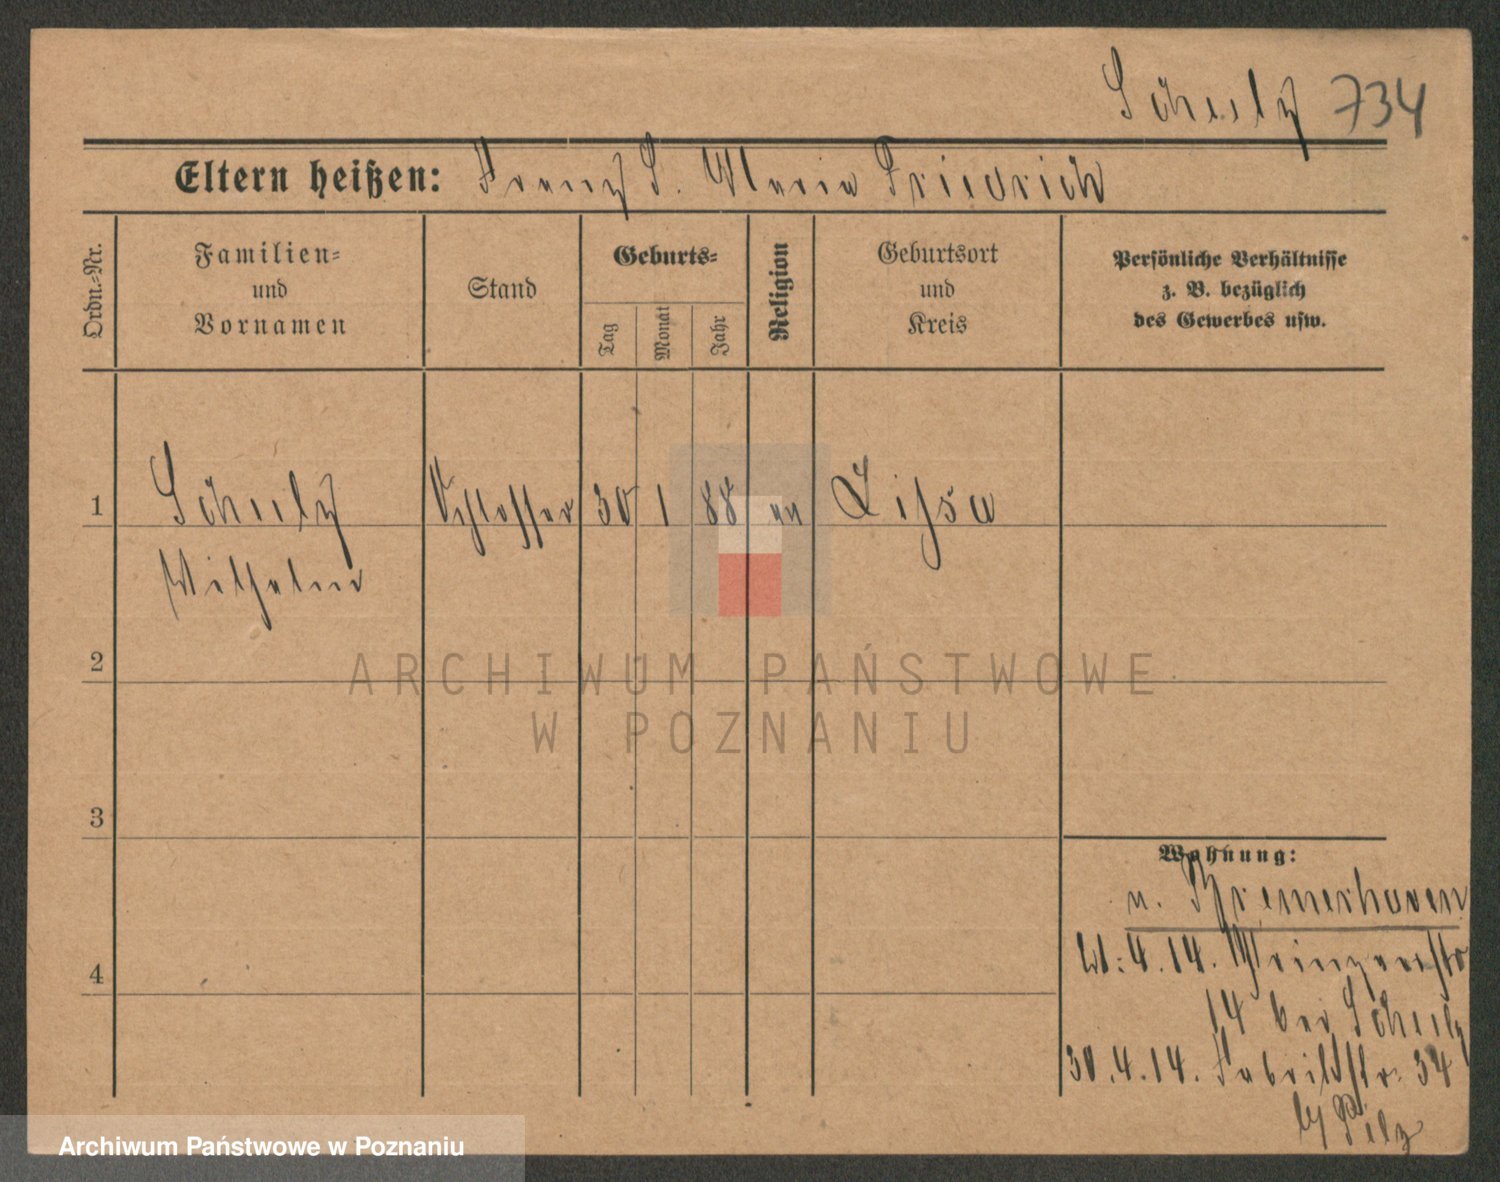 Schulz 734
Eltern heißen: Franz S. Maria Friedrich
Ordn.-Nr.
Familien-
und
Vornamen
Stand
Geburts-
Tag
Monat
Jahr
Religion
Geburtsort
und
Kreis
Persönliche Verhältnisse
z. B. bezüglich
des Gewerbes usw.
1 Schulz Schlosser 30 1 88 ev Lissa
Wilhelm
2
3
4
Wohnung:
n. Bremerhaven
4.14.
14 bei Schulz
30.4.14. Fabrikstr. 34
b/ Pilz
ARCHIWUM PAŃSTWOWE
W POZNANIU
Archiwum Państwowe w Poznaniu